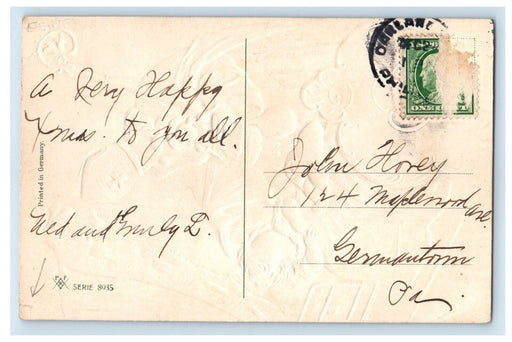 A Very Happy
Xmas. to you all.
Ned and Emily D.
Printed in Germany.
P.F.
SERIE 8935
John Hovey
124 Maplewood Ave.
Germantown
Pa.